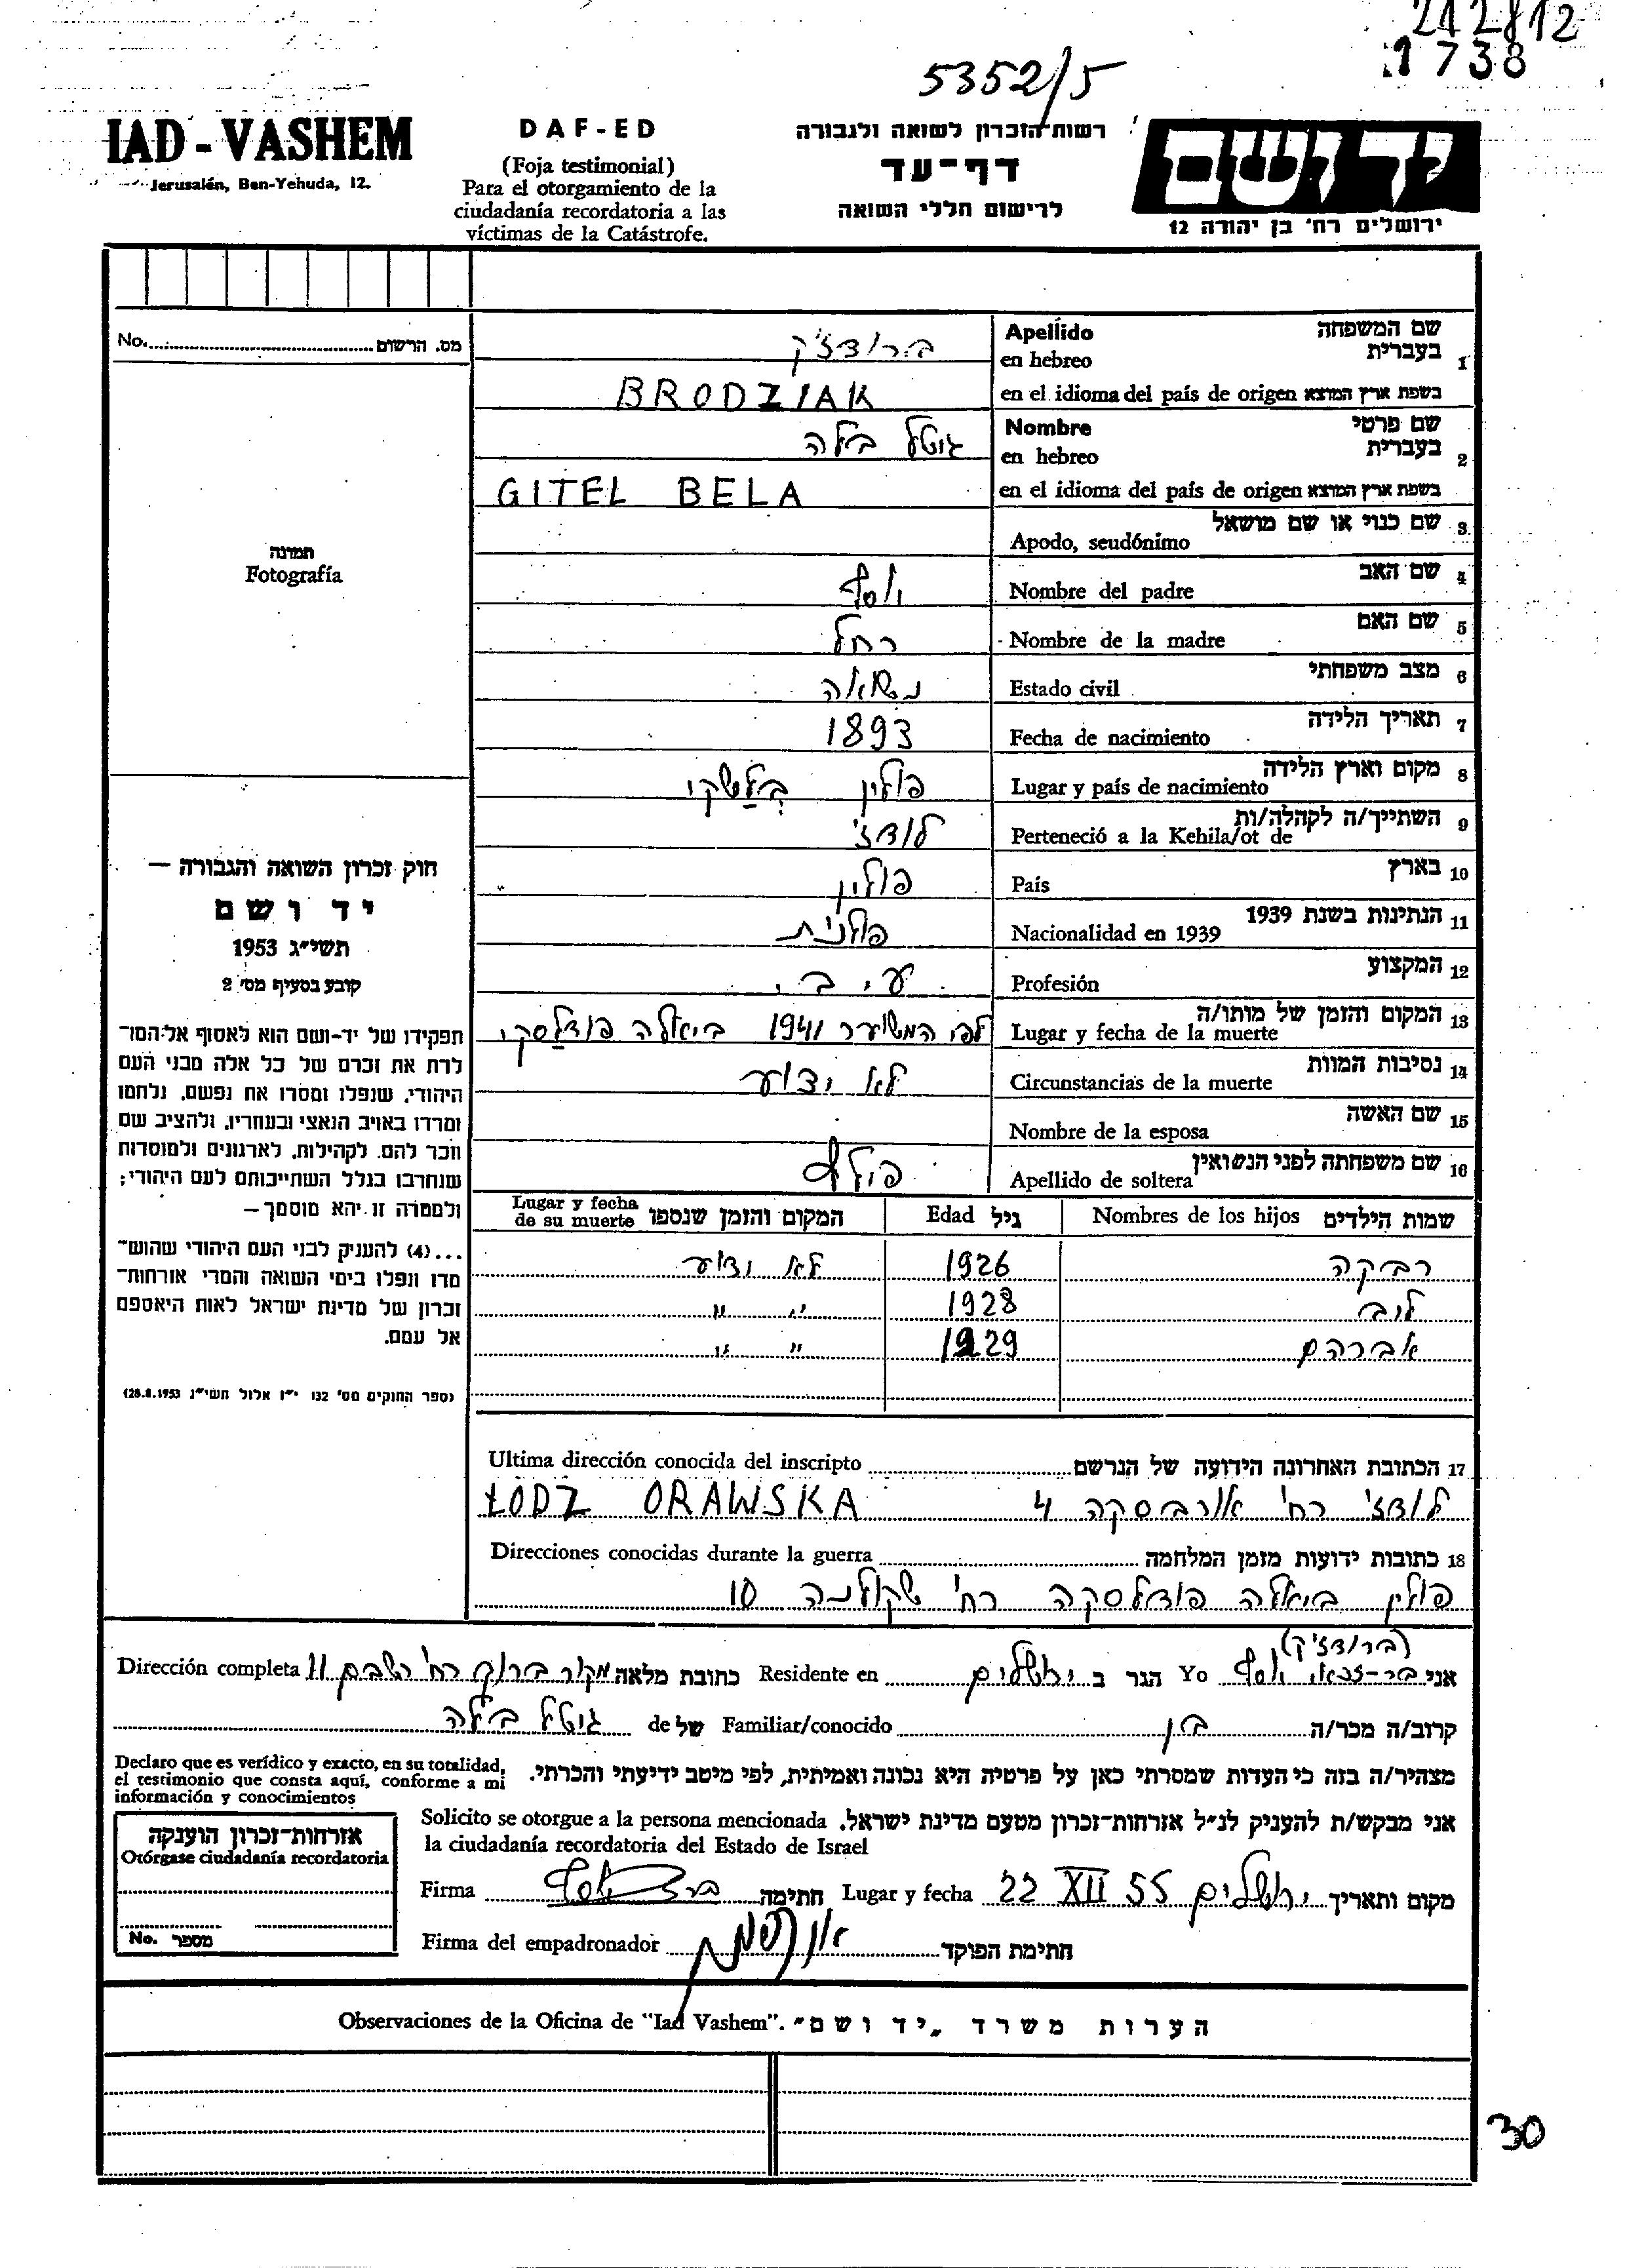 212812
1738
5352/5
IAD - VASHEM
Jerusalén, Ben-Yehuda, 12.
DAF-ED
(Foja testimonial)
Para el otorgamiento de la
ciudadanía recordatoria a las
víctimas de la Catástrofe.
רשות הזכרון לשואה ולגבורה
דף-עד
לרישום חללי השואה
יד ושם
ירושלים רח' בן יהודה 12
No. מס. הרשום
תמונה
Fotografía
1 שם המשפחה בעברית Apellido en hebreo ברודז'ק
בשפת ארץ המוצא en el idioma del país de origen BRODZIAK
2 שם פרטי בעברית Nombre en hebreo גיטל בלה
בשפת ארץ המוצא en el idioma del país de origen GITEL BELA
3 שם כנוי או שם מושאל Apodo, seudónimo
4 שם האב Nombre del padre יוסף
5 שם האם Nombre de la madre רחל
6 מצב משפחתי Estado civil נשואה
7 תאריך הלידה Fecha de nacimiento 1893
8 מקום וארץ הלידה Lugar y país de nacimiento פולין
9 השתייך/ה לקהלה/ות Perteneció a la Kehila/ot de לודז'
10 בארץ País פולין
11 הנתינות בשנת 1939 Nacionalidad en 1939 פולנית
12 המקצוע Profesión
13 המקום והזמן של מותו/ה Lugar y fecha de la muerte לפי המשוער 1941 ביאלה פודלסקי
14 נסיבות המוות Circunstancias de la muerte לא ידוע
15 שם האשה Nombre de la esposa
16 שם משפחתה לפני הנשואין Apellido de soltera
שמות הילדים Nombres de los hijos גיל Edad המקום והזמן שנספו Lugar y fecha de su muerte
רבקה 1926 לא ידוע
לוב 1928 " "
אברהם 1929 " "
חוק זכרון השואה והגבורה —
יד ושם
תשי"ג 1953
קובע בסעיף מס' 2
תפקידו של יד-ושם הוא לאסוף אל-המו-
לדת את זכרם של כל אלה מבני העם
היהודי, שנפלו ומסרו את נפשם, נלחמו
ומרדו באויב הנאצי ובעוזריו, ולהציב שם
וזכר להם, לקהילות, לארגונים ולמוסדות
שנחרבו בגלל השתייכותם לעם היהודי;
ולמטרה זו יהא מוסמך —
...(4) להעניק לבני העם היהודי שהוש-
מדו ונפלו בימי השואה והמרי אזרחות-
זכרון של מדינת ישראל לאות היאספם
אל עמם.
(ספר החוקים מס' 132 י"ז אלול תשי"ג 28.8.1953)
17 הכתובת האחרונה הידועה של הנרשם Ultima dirección conocida del inscripto
לודז' רח' אורבסקה 4 ŁODZ ORAWSKA
18 כתובות ידועות מזמן המלחמה Direcciones conocidas durante la guerra
פולין ביאלה פודלסקה רח' שקולנה 10
(ברודז'ק)
אני יוסף Yo הגר ב ירושלים Residente en כתובת מלאה מקור ברוך רח' השבם 11 Dirección completa
קרוב/ה מכר/ה בן Familiar/conocido של de גיטל בלה
מצהיר/ה בזה כי העדות שמסרתי כאן על פרטיה היא נכונה ואמיתית, לפי מיטב ידיעתי והכרתי.
Declaro que es verídico y exacto, en su totalidad,
el testimonio que consta aquí, conforme a mi
información y conocimientos
אני מבקש/ת להעניק לנ"ל אזרחות-זכרון מטעם מדינת ישראל.
Solicito se otorgue a la persona mencionada
la ciudadanía recordatoria del Estado de Israel
מקום ותאריך ירושלים 22 XII 55 Lugar y fecha חתימה Firma
חתימת הפוקד Firma del empadronador
אזרחות-זכרון הוענקה
Otórgase ciudadanía recordatoria
No. מספר
Observaciones de la Oficina de "Iad Vashem". הערות משרד "יד ושם"
30